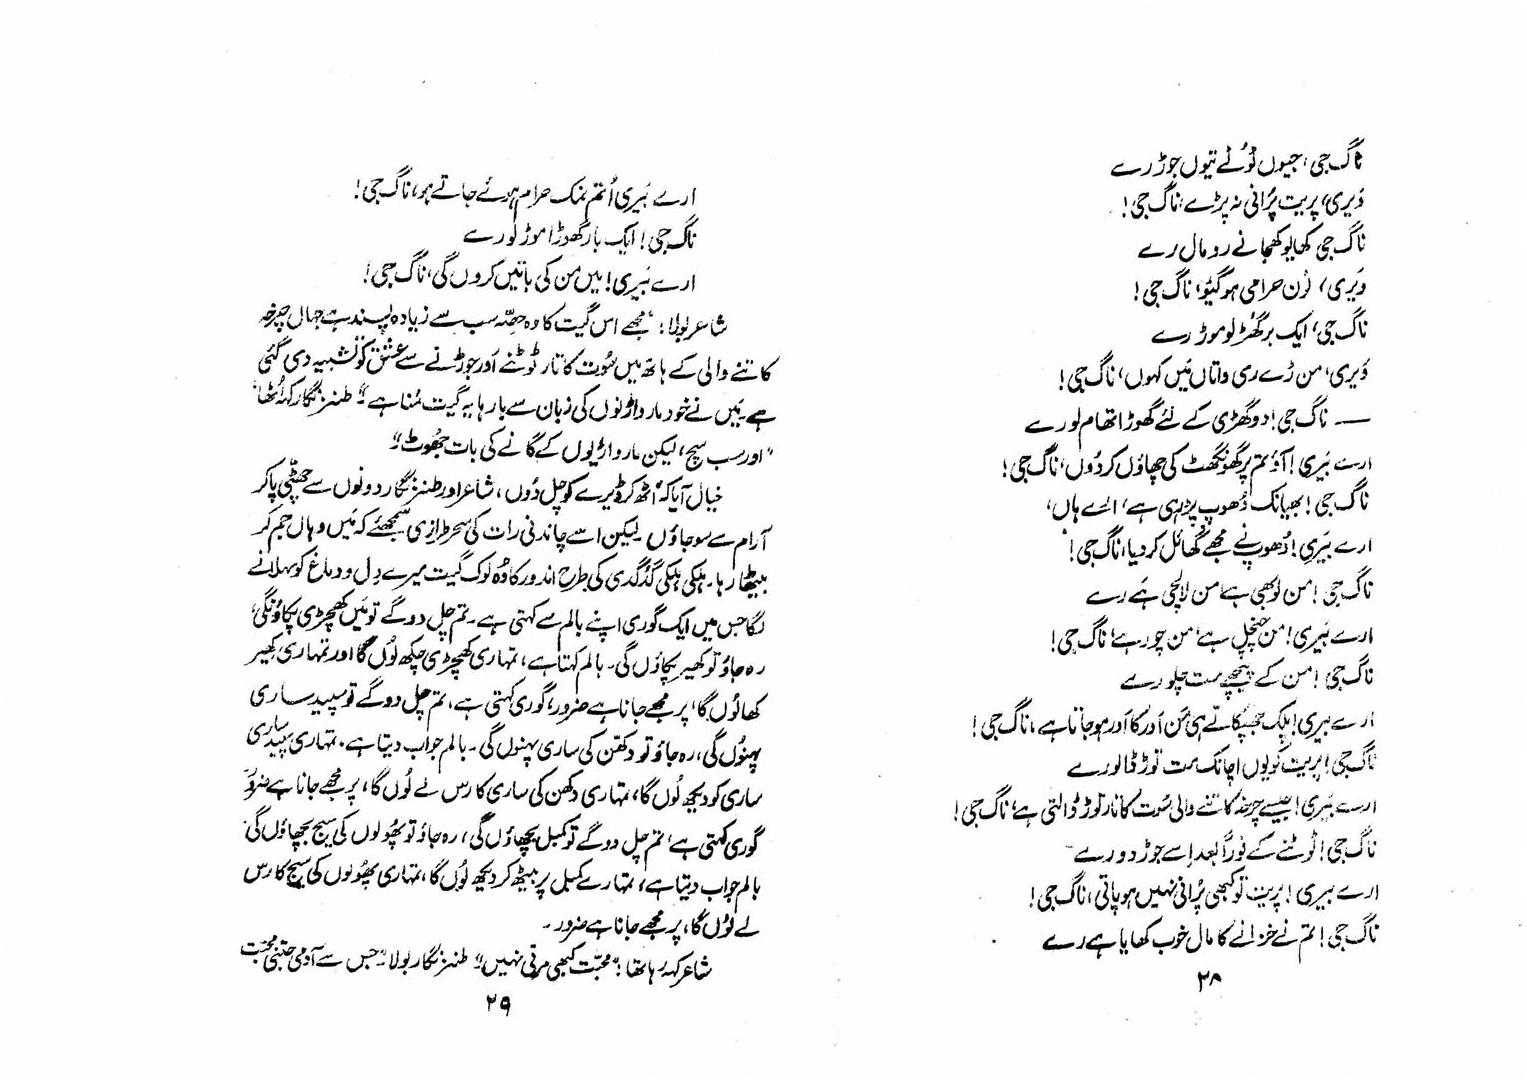 ناگ جی، جیوں ٹوٹے تیوں جوڑ رے
وَیری، پریت پُرانی نہ پڑے، ناگ جی!
ناگ جی کھایو کھجانے رو مال رے
وَیری، لُون حرامی ہو گیؤ، ناگ جی!
ناگ جی، ایک بر گھڑ لو موڑ رے
وَیری، من ڑے ری واتاں مَیں کہوں، ناگ جی!
— ناگ جی! دو گھڑی کے لئے گھوڑا تھام لو رے
ارے بَیری! آؤ تم پر گھونگھٹ کی چھاؤں کر دُوں، ناگ جی!
ناگ جی! بھیانک دُھوپ پڑ رہی ہے، اسے ہاں،
ارے بَیری! دُھوپ نے مجھے گھائل کر دیا، ناگ جی!
ناگ جی! من لوبھی ہے، من لالچی ہے رے
ارے بَیری! من چنچل ہے، من چور ہے، ناگ جی!
ناگ جی! من کے پیچھے مت چلو رے
ارے بیری! پلک جھپکاتے ہی من اَور کا اَور ہو جاتا ہے، ناگ جی!
ناگ جی! پریت کو یوں اچانک مت توڑ ڈالو رے
ارے بَیری! جیسے چرخہ کاتنے والی سُوت کا تار توڑ ڈالتی ہے، ناگ جی!
ناگ جی! ٹوٹنے کے فوراً بعد اسے جوڑ دو رے
ارے بَیری! پریت تو کبھی پُرانی نہیں ہو پاتی، ناگ جی!
ناگ جی! تم نے خزانے کا مال خوب کھایا ہے رے
۲۸
ارے بَیری! تم نمک حرام ہوئے جاتے ہو، ناگ جی!
ناگ جی! ایک بار گھوڑا موڑ لو رے
ارے بَیری! میں من کی باتیں کروں گی، ناگ جی!
شاعر بولا: "مجھے اس گیت کا وہ حصّہ سب سے زیادہ پسند ہے جہاں چرخہ
کاتنے والی کے ہاتھ میں سُوت کا تار ٹوٹنے اَور جوڑنے سے عشق کو تشبیہ دی گئی
ہے۔ مَیں نے خود مارواڑنوں کی زبان سے بارہا یہ گیت سُنا ہے۔" طنز نگار کہہ اُٹھا،
"اور سب سچ، لیکن مارواڑیوں کے گانے کی بات جھُوٹ۔"
خیال آیا کہ اُٹھ کر ڈیرے کو چل دُوں، شاعر اور طنز نگار دونوں سے چھٹّی پا کر
آرام سے سو جاؤں لیکن اسے چاندنی رات کی سحر طرازی سمجھئے کہ مَیں وہاں جم کر
بیٹھا رہا۔ ہلکی ہلکی گُدگدی کی طرح اندور کا وُہ لوک گیت میرے دِل و دماغ کو سہلانے
لگا جس میں ایک گوری اپنے بالم سے کہتی ہے۔ تم چل دو گے تو مَیں کھچڑی پکاؤنگی،
رہ جاؤ تو کھیر پکاؤں گی۔ بالم کہتا ہے، تمہاری کھچڑی چکھ لُوں گا اور تمہاری کھیر
کھاؤں گا، پر مجھے جانا ہے ضرور، گوری کہتی ہے، تم چل دو گے تو سپید ساری
پہنُوں گی، رہ جاؤ تو دکھن کی ساری پہنوں گی۔ بالم جواب دیتا ہے، تمہاری سپید ساری
ساری کو دیکھ لُوں گا، تمہاری دکھن کی ساری کا رس لے لُوں گا، پر مجھے جانا ہے ضرور
گوری کہتی ہے، تم چل دو گے تو کمبل بچھاؤں گی، رہ جاؤ تو پھُولوں کی سیج بچھاؤں گی
بالم جواب دیتا ہے، تمہارے کمبل پر بیٹھ کر دیکھ لُوں گا، تمہاری پھولوں کی سیج کا رس
لے لُوں گا، پر مجھے جانا ہے ضرور۔
شاعر کہہ رہا تھا: "محبّت کبھی مرتی نہیں۔" طنز نگار بولا۔ "جس سے آدمی جتنی محبّت
۲۹